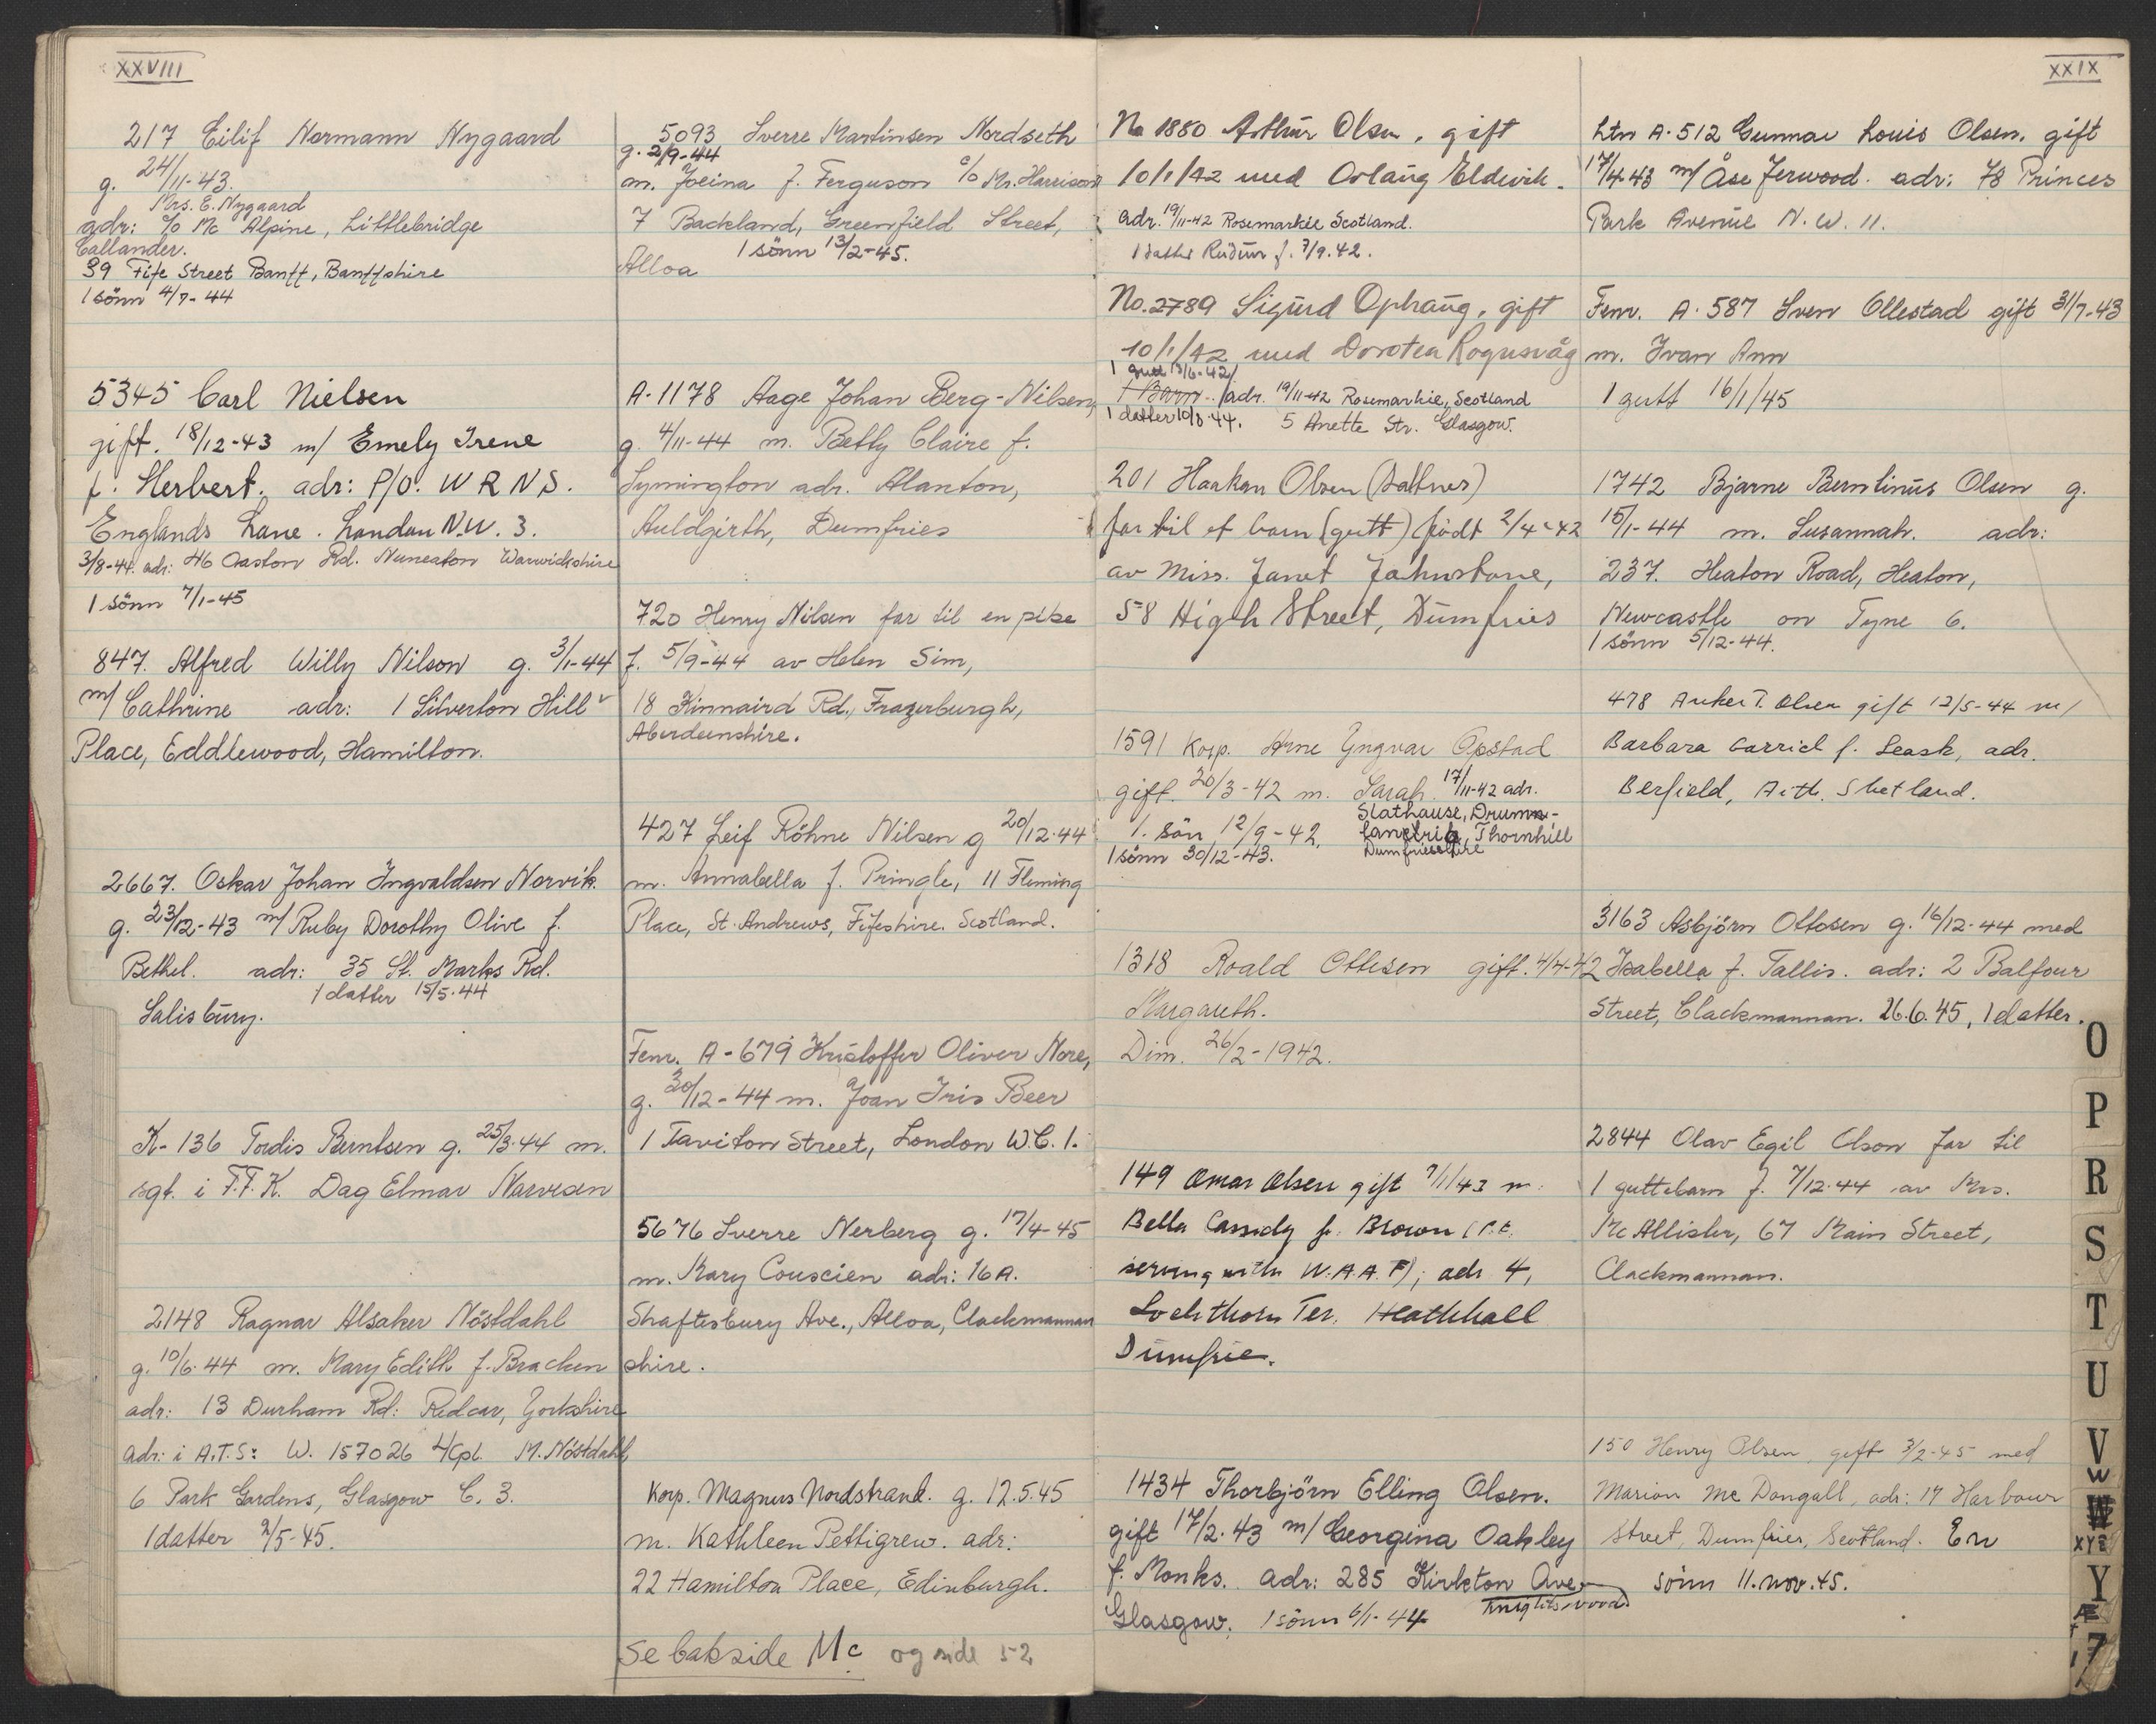 XXVIII
217 Eilif Normann Nygaard
g. 24/11-43.
Mrs. E. Nygaard
adr: c/o Mc Alpine, Littlebridge
Callander.
39 Fife Street Banff, Banffshire
1 sönn 4/7-44
5345 Carl Nielsen
gift. 18/12-43 m/ Emely Irene
f. Herbert. adr: P/O. W R N S.
Englands Lane. London N.W. 3.
3/8-44. adr: 46 Caston Rd. Nuneaton Warwickshire
1 sönn 7/1-45
847. Alfred Willy Nilson g. 3/1-44
m/ Cathrine adr: 1 Silverton Hill
Place, Eddlewood, Hamilton.
2667. Oskar Johan Ingvaldsen Norvik.
g. 23/12-43 m/ Ruby Dorothy Olive f.
Bethel. adr: 35 St. Marks Rd.
1 datter 15/5-44
Salisbury.
K-136 Tordis Berntsen g. 25/3-44 m.
sgt. i F.F.K. Dag Elmar Narvesen
2148 Ragnar Alsaker Nöstdahl
g. 10/6-44 m. Mary Edith f. Bracken
adr: 13 Durham Rd. Redcar, Yorkshire
adr: i A.T.S: W. 157026 L/Cpl. M. Nöstdahl,
6 Park Gardens, Glasgow C. 3.
1 datter 2/5-45.
5093 Sverre Martinsen Nordseth
g. 2/9-44
m. Joeina f. Ferguson c/o Mr. Harrison
7 Backland, Greenfield Street,
1 sönn 13/2-45.
Alloa
A-1178 Aage Johan Berg-Nilsen,
g. 4/11-44 m. Betty Claire f.
Symington adr. Alanton,
Auldgirth, Dumfries
720 Henry Nilsen far til en pike
f. 5/9-44 av Helen Sim,
18 Kinnaird Rd., Frazerburgh,
Aberdeenshire.
427 Leif Röhne Nilsen g 20/12-44
m. Annabella f. Pringle, 11 Fleming
Place, St. Andrews, Fifeshire. Scotland.
Fenr. A-679 Kristoffer Oliver Nore,
g. 30/12-44 m. Joan Iris Beer
1 Taviton Street, London W.C. 1.
5676 Sverre Nerberg g. 17/4-45
m. Mary Couscien adr: 16A.
Shaftesbury Ave., Alloa, Clackmannan
shire.
Korp. Magnus Nordstrand. g. 12.5.45
m. Kathleen Pettigrew. adr:
22 Hamilton Place, Edinburgh.
Se bakside Mc og side 52
XXIX
No 1880 Arthur Olsen, gift
10/1/42 med Aslaug Eldevik.
adr. 19/11-42 Rosemarkie Scotland.
1 datter f. 7/9.42.
No. 2789 Sigurd Ophaug, gift
10/1/42 med Dorotea Rognsvåg
1 gutt 13/6-42/
1 Barn. adr. 19/11-42 Rosemarkie, Scotland
1 datter 10/8-44. 5 Anette Str. Glasgow.
201 Haakon Olsen (Saltnes)
far til et barn (gutt) födt 2/4-42
av Miss. Janet Johnstone,
58 High Street, Dumfries
1591 Korp. Arne Yngvar Opstad
gift. 20/3-42 m. Sarah. 17/11-42 adr.
Slathause, Drum-
1. sön 12/9-42. lanrig, Thornhill
1 sönn 30/12-43. Dumfriesshire
1318 Roald Ottesen gift. 4/4-42
Margareth.
Dim. 26/2-1942.
149 Omar Olsen gift 7/1/43 m.
Bella Cassidy f. Brown (P.t.
serving with W.A.A.F), adr 4,
Lochthorn Ter. Heathhall
Dumfrie.
1434 Thorbjörn Elling Olsen.
gift 17/2-43 m/ Georgina Oakley
f. Monks. adr: 285 Kirkton Ave.
Knightswood
Glasgow. 1 sönn 6/1-44
Ltn A-512 Gunnar Louis Olsen. gift
17/4-43 m/ Åse Jerwood. adr: 78 Princes
Park Avenue N.W. 11.
Fenr. A-587 Sven Ollestad gift 31/7-43
m. Ivan Ann
1 gutt 16/1/45
1742 Bjarne Berntinus Olsen g.
15/1-44 m. Susannah. adr:
237. Heaton Road, Heaton,
Newcastle on Tyne 6.
1 sönn 5/12-44.
478 Anker T. Olsen gift 12/5-44 m/
Barbara Carrick f. Leask, adr.
Berfield, Aith. Shetland.
3163 Asbjörn Ottosen g. 16/12-44 med
Isabella f. Tallis. adr: 2 Balfour
Street, Clackmannan. 26.6.45, 1 datter.
2844 Olav Egil Olson far til
1 guttebarn f. 7/12-44 av Mrs.
McAllister, 67 Main Street,
Clackmannan.
150 Henry Olsen, gift 3/2-45 med
Marion Mc Dongall, adr: 17 Harbour
Street, Dumfries, Scotland. En
sönn 11. nov. 45.
O
P
R
S
T
U
V
W
W
XYZ
Y
Æ